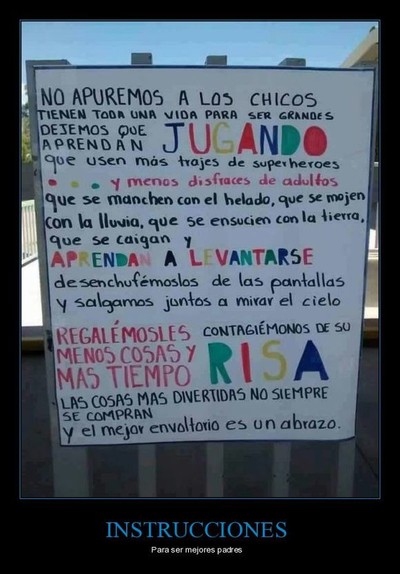 NO APUREMOS A LOS CHICOS
TIENEN TODA UNA VIDA PARA SER GRANDES
DEJEMOS QUE
APRENDAN JUGANDO
que usen más trajes de superheroes
... y menos disfraces de adultos
que se manchen con el helado, que se mojen
con la lluvia, que se ensucien con la tierra,
que se caigan y
APRENDAN A LEVANTARSE
desenchufémoslos de las pantallas
y salgamos juntos a mirar el cielo
REGALÉMOSLES
MENOS COSAS Y
MAS TIEMPO
CONTAGIÉMONOS DE SU
RISA
LAS COSAS MAS DIVERTIDAS NO SIEMPRE
SE COMPRAN
y el mejor envoltorio es un abrazo.
INSTRUCCIONES
Para ser mejores padres